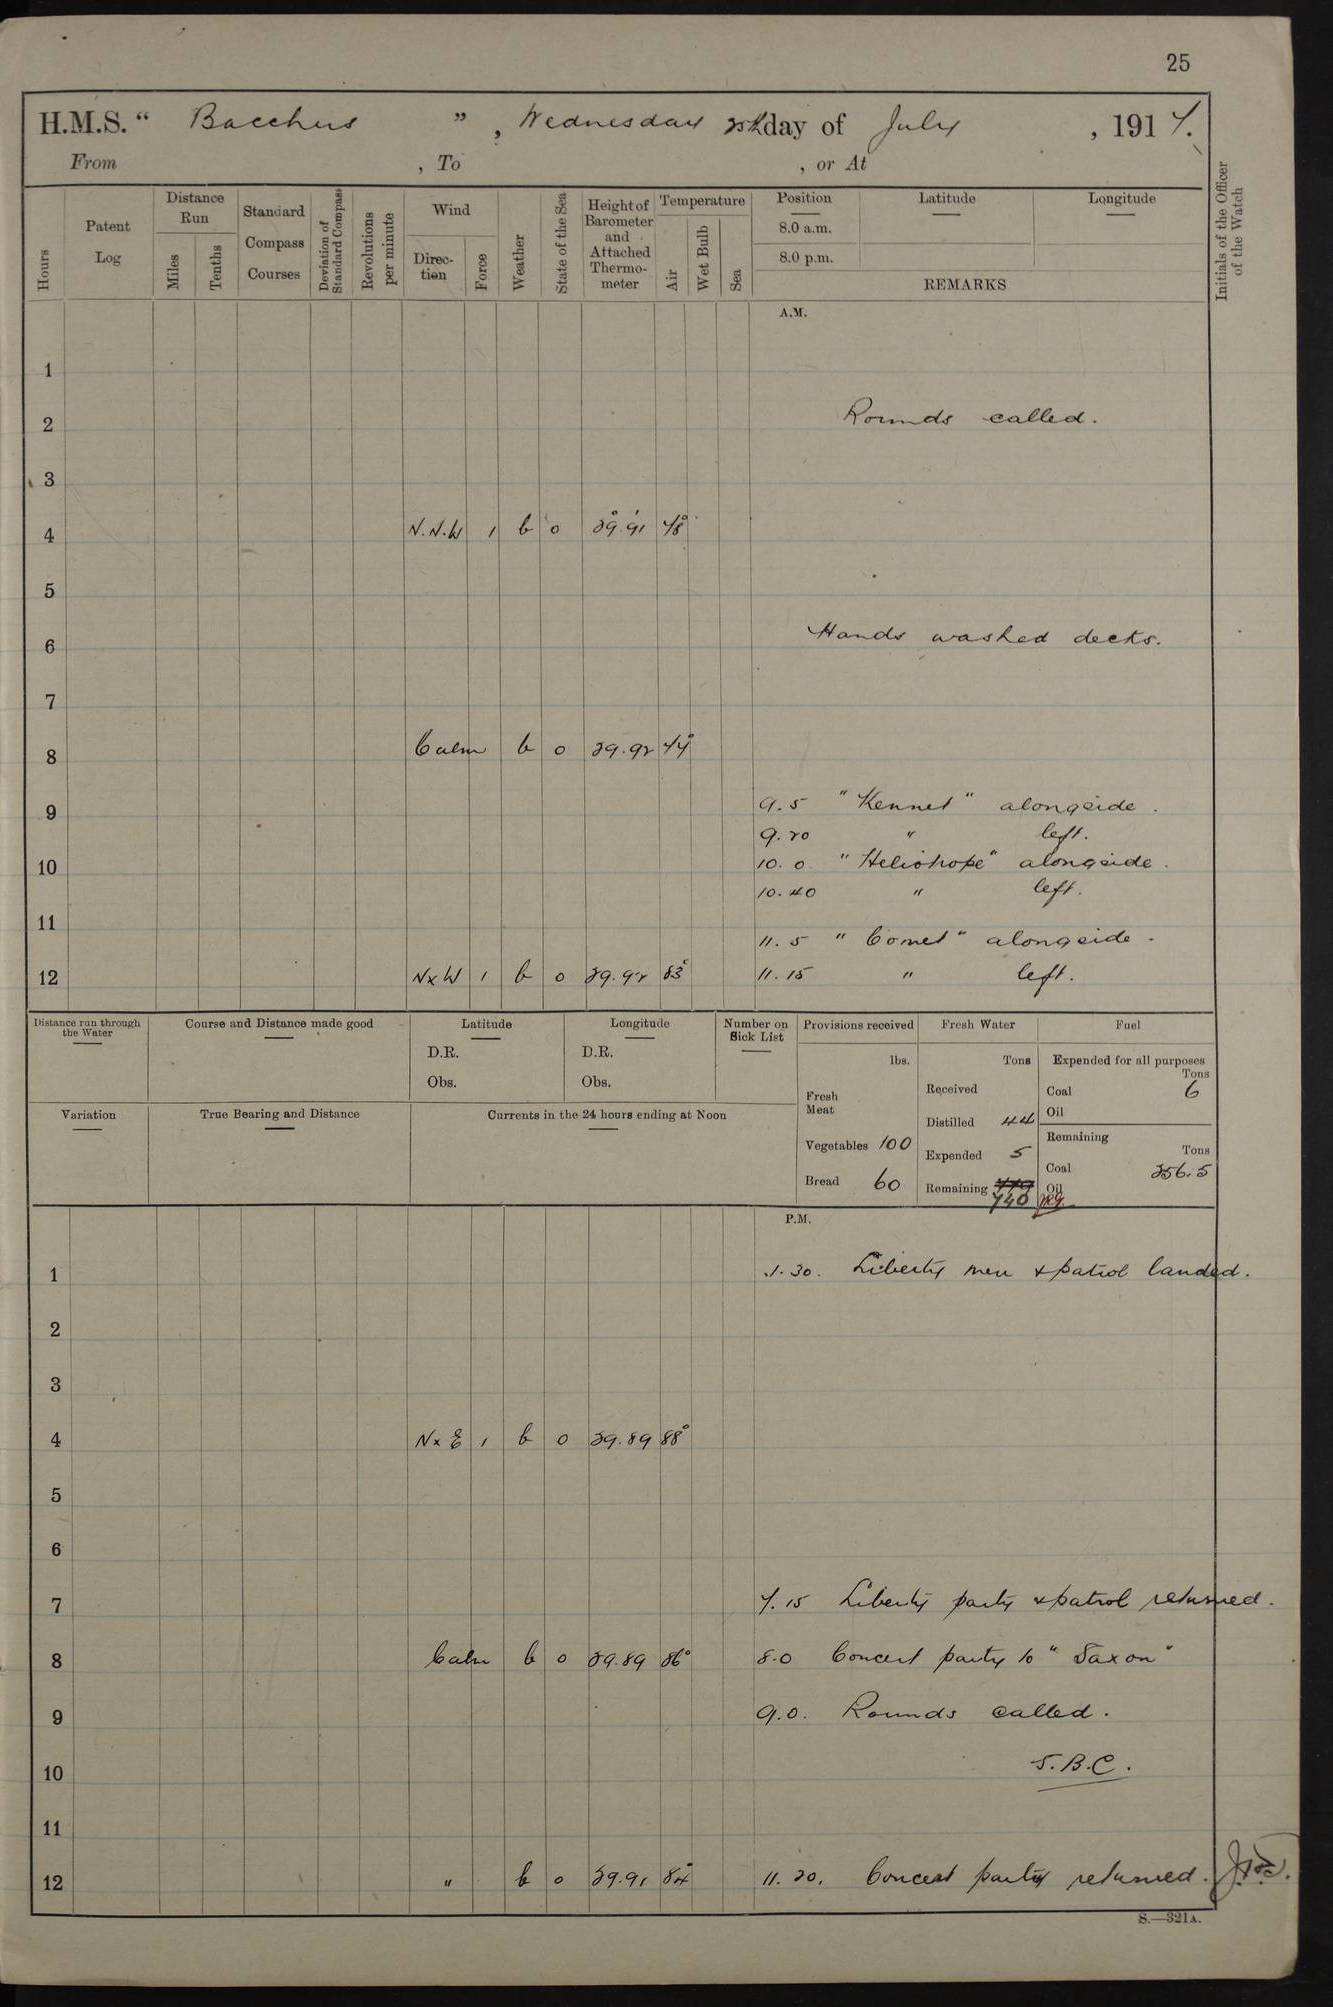 25
H.M.S. “ Bacchus ”, Wednesday 25th day of July, 1917.
From , To , or At
Hours
Patent Log
Distance Run
Miles
Tenths
Standard Compass Courses
Deviation of Standard Compass
Revolutions per minute
Wind
Direction
Force
Weather
State of the Sea
Height of Barometer and Attached Thermometer
Temperature
Air
Wet Bulb
Sea
Position
8.0 a.m.
8.0 p.m.
Latitude
Longitude
REMARKS
Initials of the Officer of the Watch
A.M.
1
2 Rounds called.
3
4 N.N.W 1 b 0 29.91 78°
5
6 Hands washed decks.
7
8 Calm b 0 29.92 77°
9 9.5 "Kennet" alongside.
9.20 " left.
10 10.0 "Heliotrope" alongside.
10.40 " left.
11 11.5 "Comet" alongside.
12 NxW 1 b 0 29.92 83° 11.15 " left.
Distance run through the Water
Course and Distance made good
Latitude
D.R.
Obs.
Longitude
D.R.
Obs.
Number on Sick List
Provisions received
lbs.
Fresh Meat
Vegetables 100
Bread 60
Fresh Water
Tons
Received
Distilled 44
Expended 5
Remaining 779 740
Fuel
Expended for all purposes
Tons
Coal 6
Oil
Remaining
Tons
Coal 256.5
Oil
Variation
True Bearing and Distance
Currents in the 24 hours ending at Noon
P.M.
1 1.30. Liberty men & patrol landed.
2
3
4 NxE 1 b 0 29.89 88°
5
6
7 7.15 Liberty party & patrol returned.
8 Calm b 0 29.89 86° 8.0 Concert party to "Saxon"
9 9.0. Rounds called.
10 S.B.C.
11
12 " b 0 29.91 84° 11.20. Concert party returned.
S.—321A.